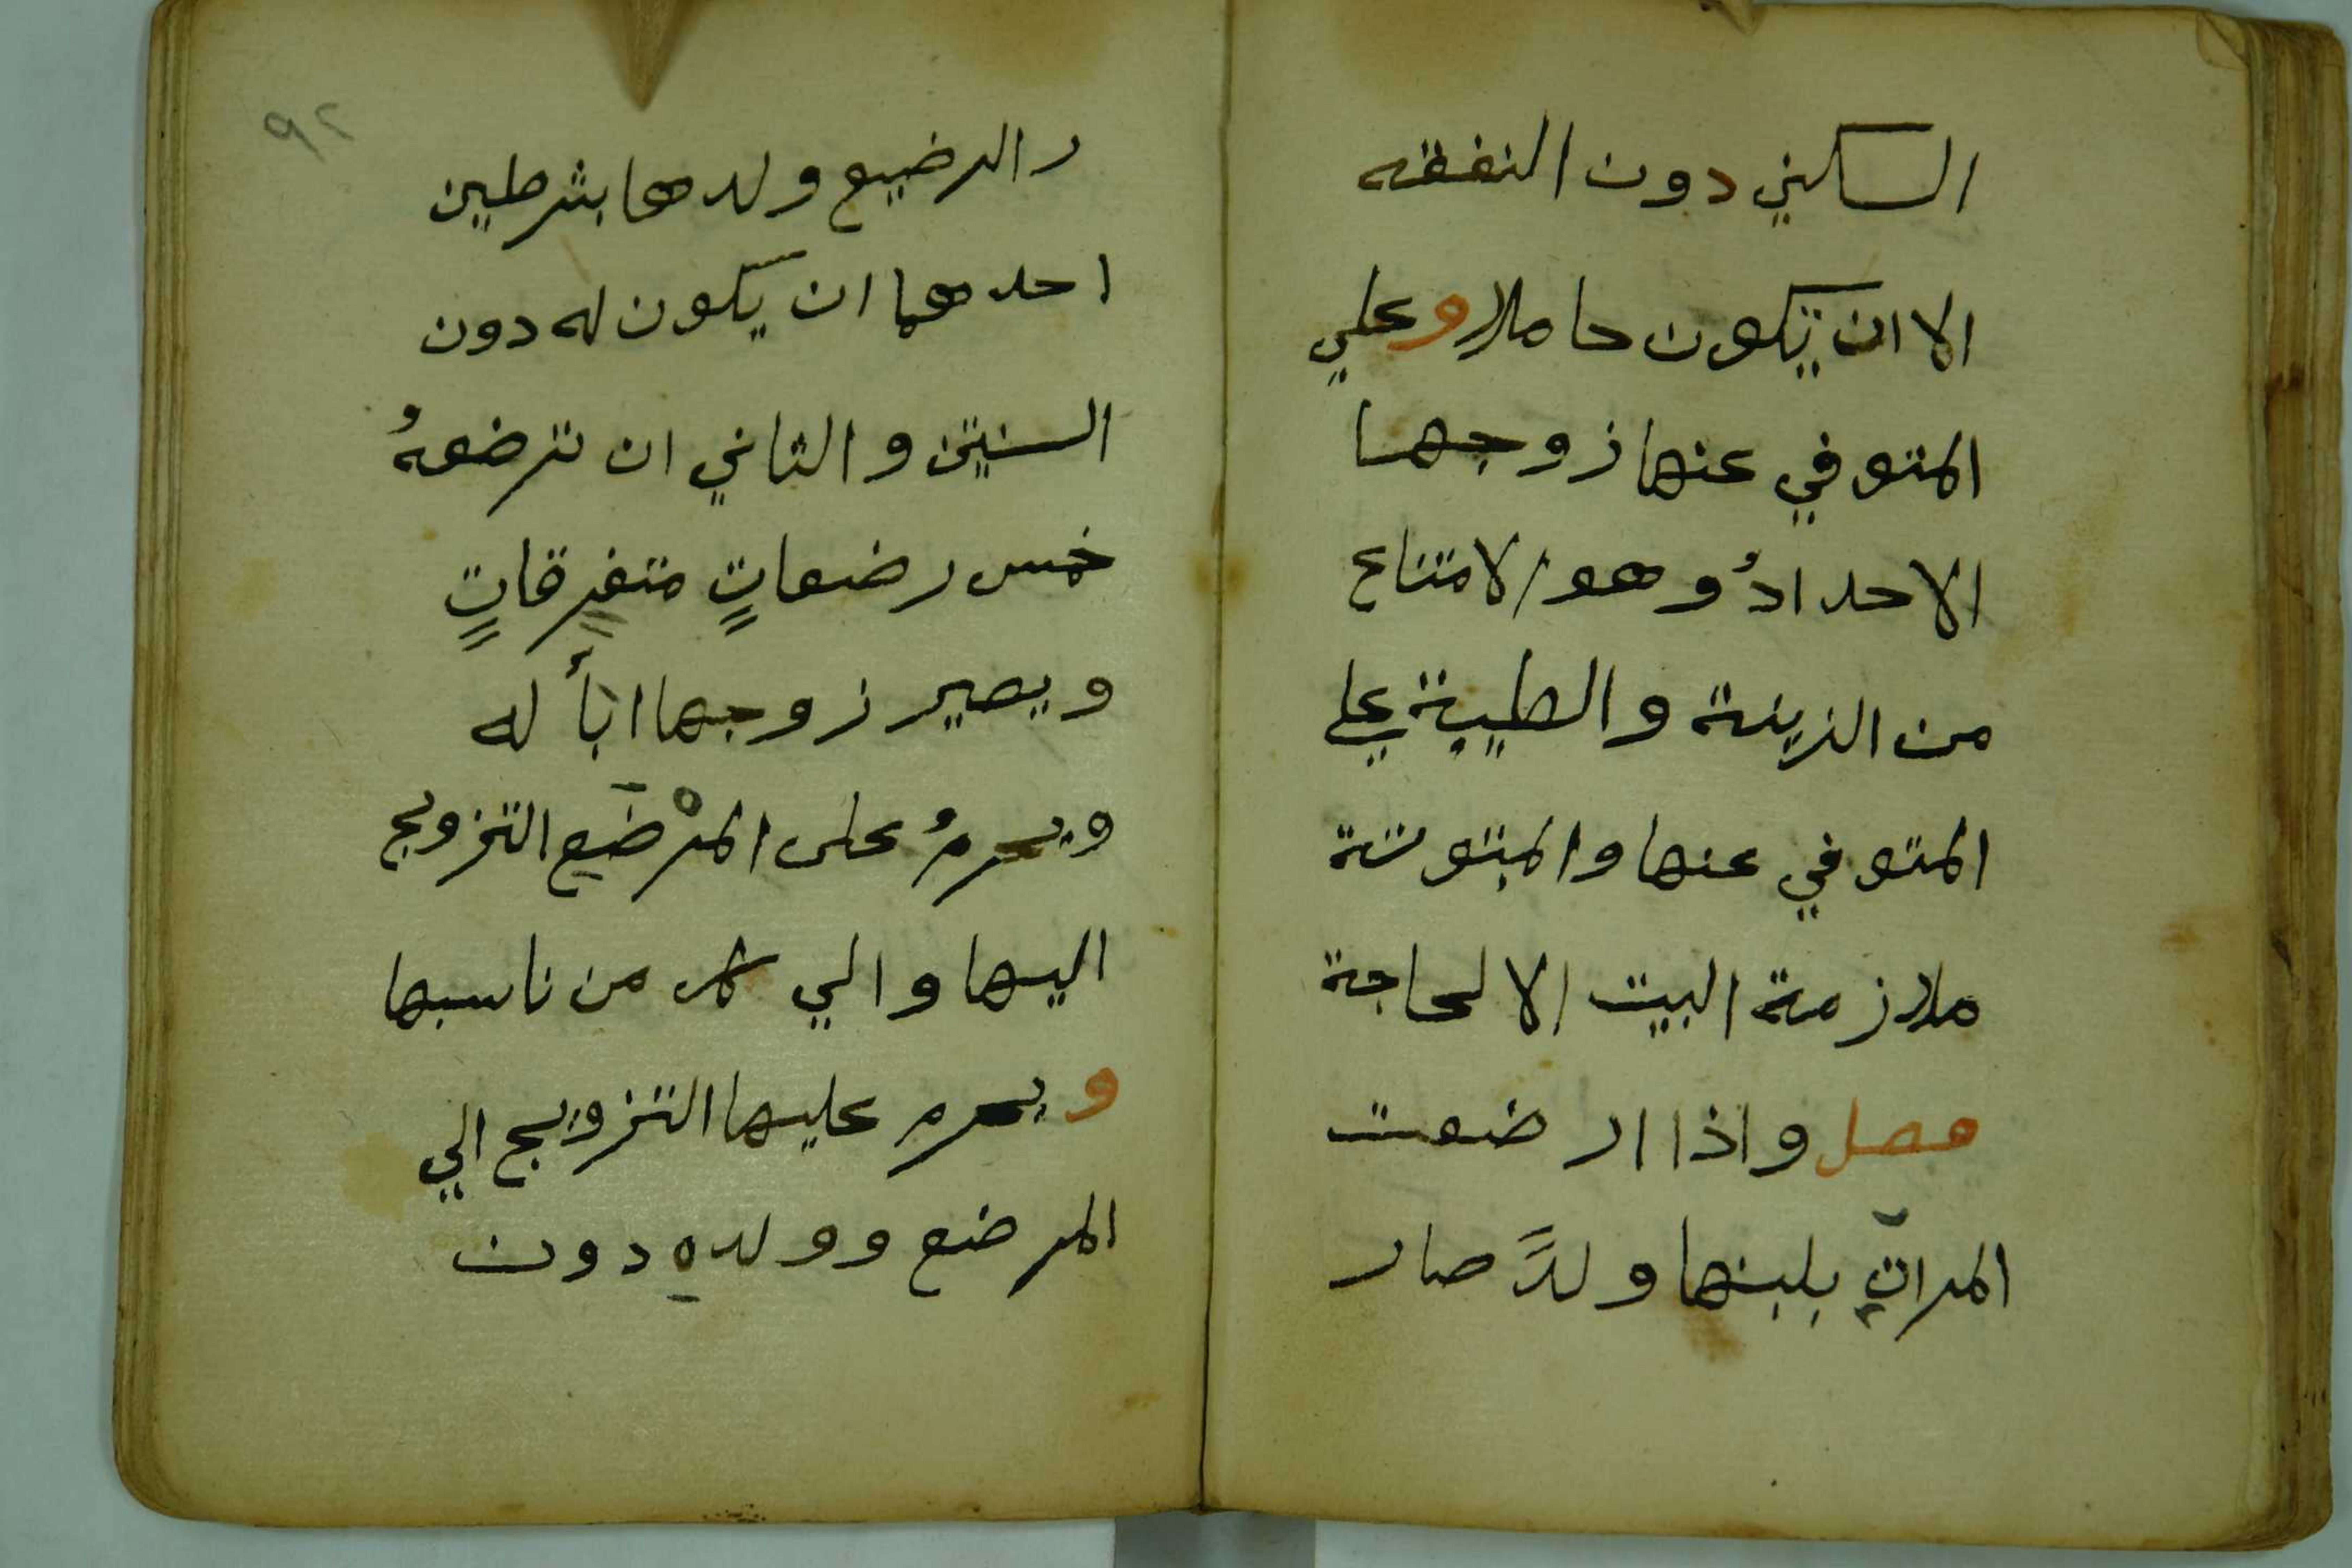 السكني دون النفقه
الا ان تكون حاملا وعلي
المتوفي عنها زوجها
الاحدادُ وهو الامتناع
من الزينة والطيبة علي
المتوفي عنها والمبتوتة
ملازمة البيت الا لحاجة
فصل واذا ارضعت
المراة بلبنها ولدًا صار
٩٢
ر الرضيع ولدها بشرطين
احدهما ان يكون له دون
السنتين والثاني ان ترضعهُ
خمس رضعاتٍ متفرقاتٍ
ويصير زوجها اباً له
ويحرمُ على المرْضَع التزويج
اليها والي كل من ناسبها
ويحرم عليها التزويج الي
المرضع وولده دون